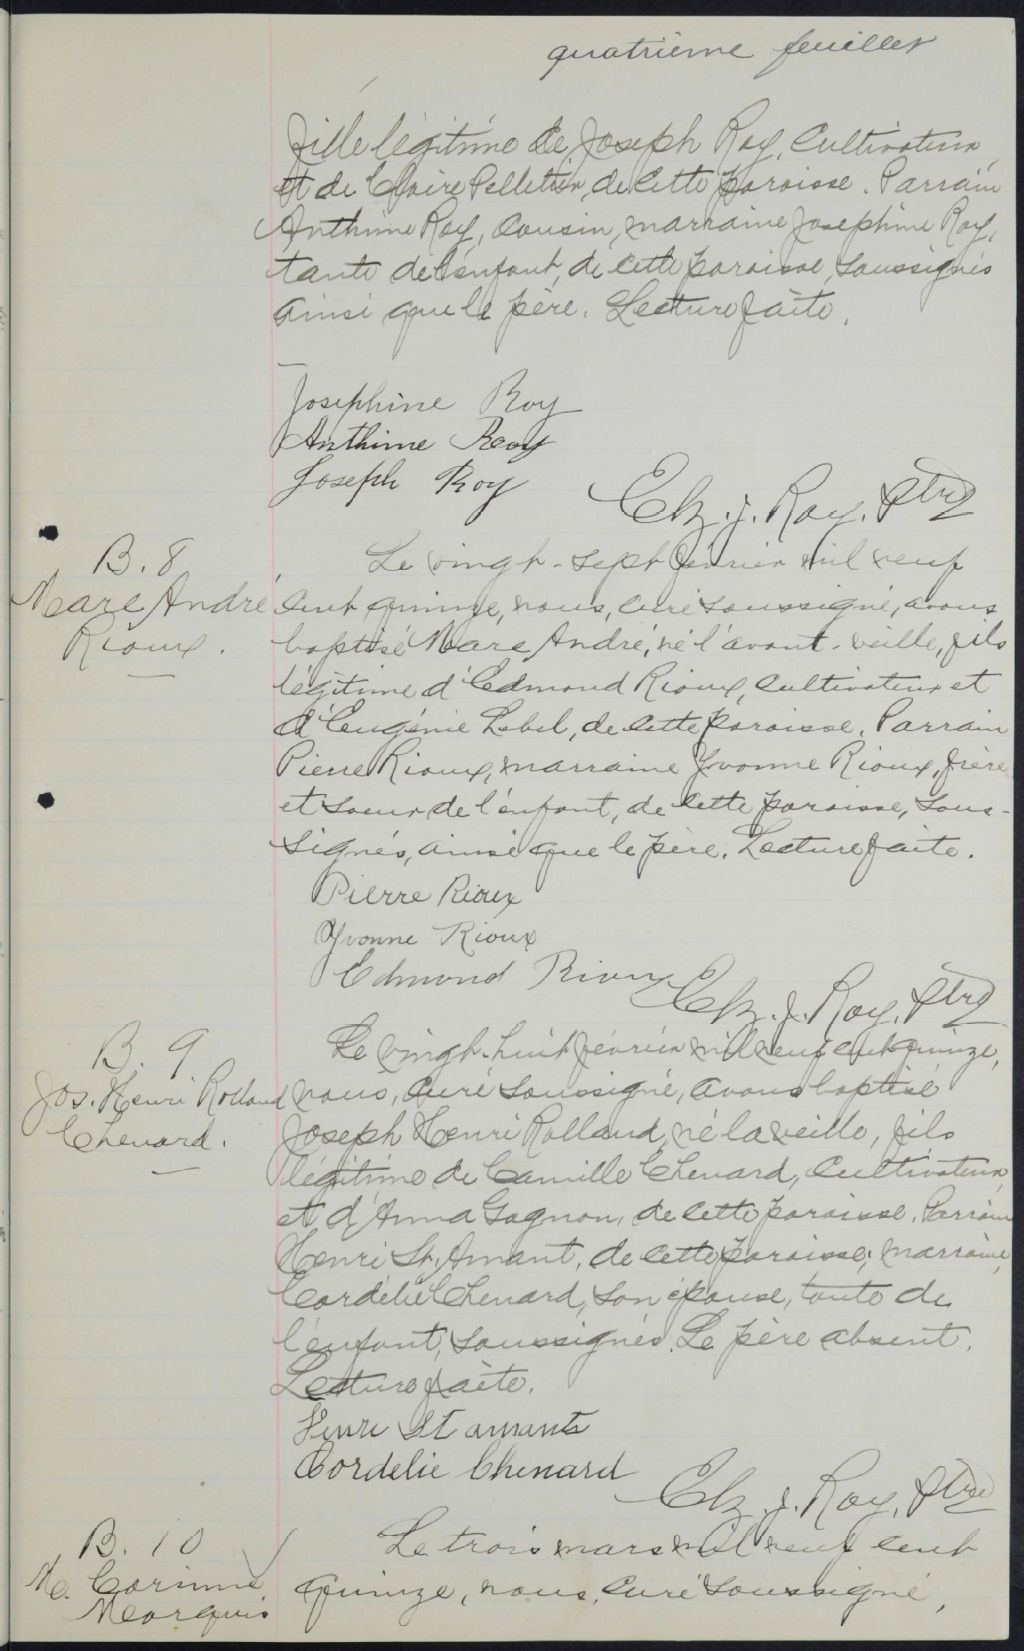 quatrième feuillet
fille légitime de Joseph Roy, cultivateur
et de Claire Pelletier, de cette paroisse. Parrain
Anthime Roy, cousin, marraine Josephine Roy,
tante de l'enfant, de cette paroisse, soussignés
ainsi que le père. Lecture faite.
Josephine Roy
Anthime Roy
Joseph Roy
Elz. J. Roy, Ptre
B. 8
Marc André
Rioux.
Le vingt-sept février mil neuf
cent quinze, nous, curé soussigné, avons
baptisé Marc André, né l'avant-veille, fils
légitime d'Edmond Rioux, cultivateur et
d'Eugénie Lebel, de cette paroisse. Parrain
Pierre Rioux, marraine Yvonne Rioux, frère
et soeur de l'enfant, de cette paroisse, sous-
signés, ainsi que le père. Lecture faite.
Pierre Rioux
Yvonne Rioux
Edmond Rioux
Elz. J. Roy, Ptre
B. 9
Jos. Henri Rolland
Chenard.
Le vingt-huit février mil neuf cent quinze,
nous, curé soussigné, avons baptisé
Joseph Henri Rolland, né la veille, fils
légitime de Camille Chenard, cultivateur,
et d'Anna Gagnon, de cette paroisse. Parrain
Henri St. Amant, de cette paroisse; marraine,
Cordélie Chenard, son épouse, tante de
l'enfant, soussignés. Le père absent.
Lecture faite.
Henri St amants
Cordelie Chenard
Elz. J. Roy, Ptre
B. 10
M. Corinne
Marquis
Le trois mars mil neuf cent
quinze, nous, curé soussigné,